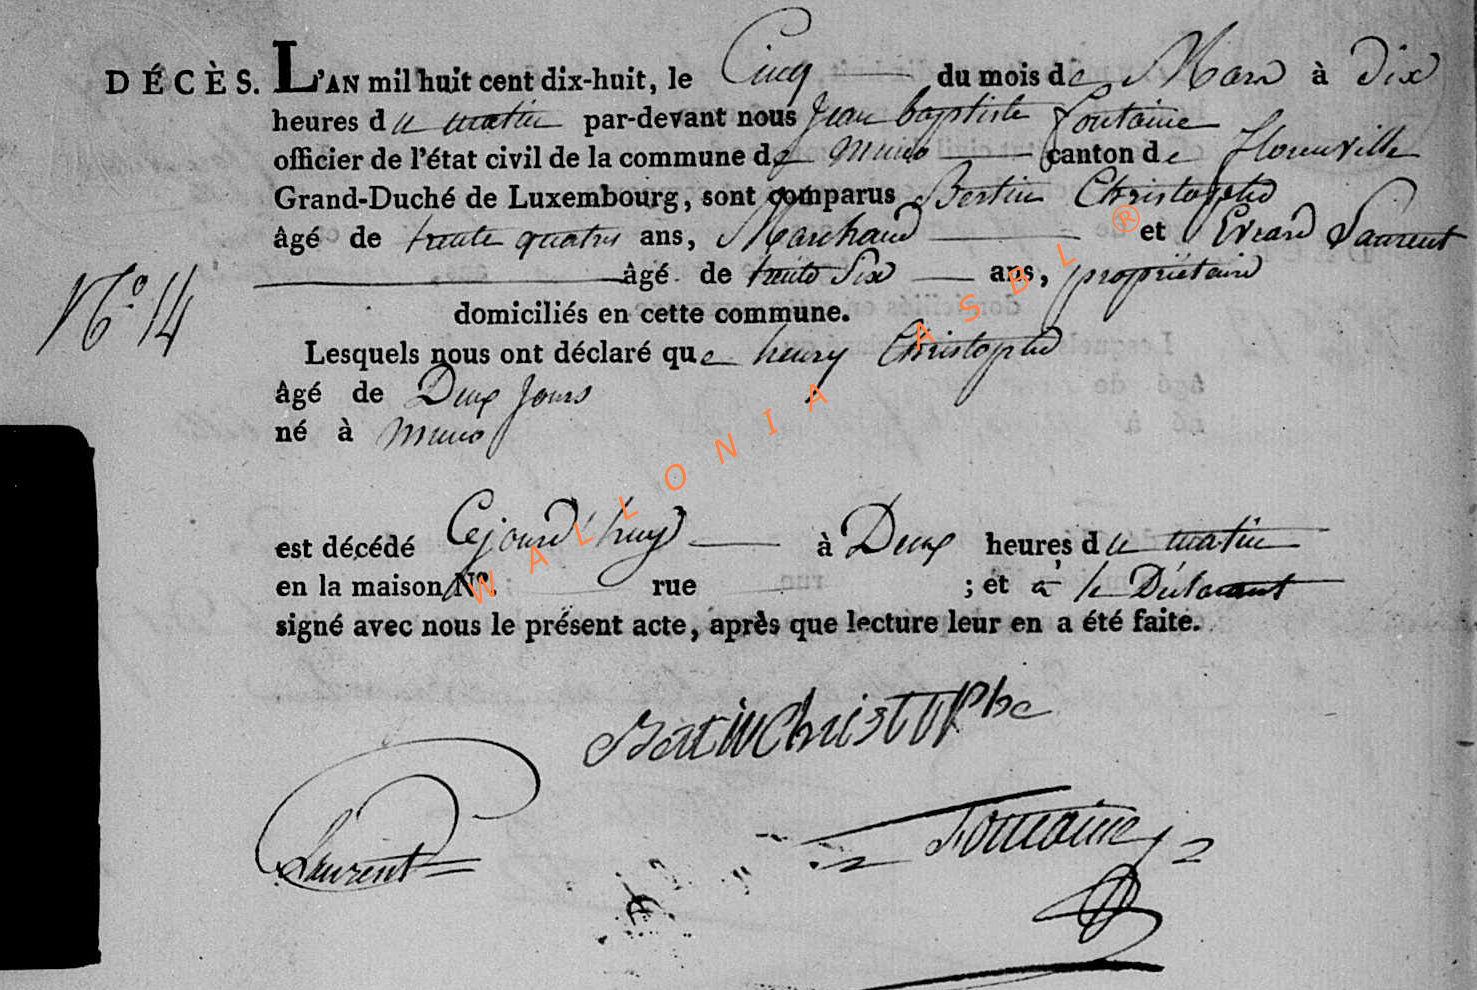 DÉCÈS. L'AN mil huit cent dix-huit, le Cinq du mois de Mars à Dix
heures du matin par-devant nous Jean baptiste fontaine
officier de l'état civil de la commune de Muno canton de florenville
Grand-Duché de Luxembourg, sont comparus Bertin Christophe
âgé de trente quatre ans, Marchand et Evrard Laurent
âgé de trente Six ans, propriétaire
N° 14
domiciliés en cette commune.
Lesquels nous ont déclaré que henry Christophe
âgé de Deux Jours
né à Muno
est décédé Cejourd'huy à Deux heures du matin
en la maison N°. rue ; et à le Déclarant
signé avec nous le présent acte, après que lecture leur en a été faite.
Bertin Christophe
Laurent
Fontaine
WALLONIA ASBL ®